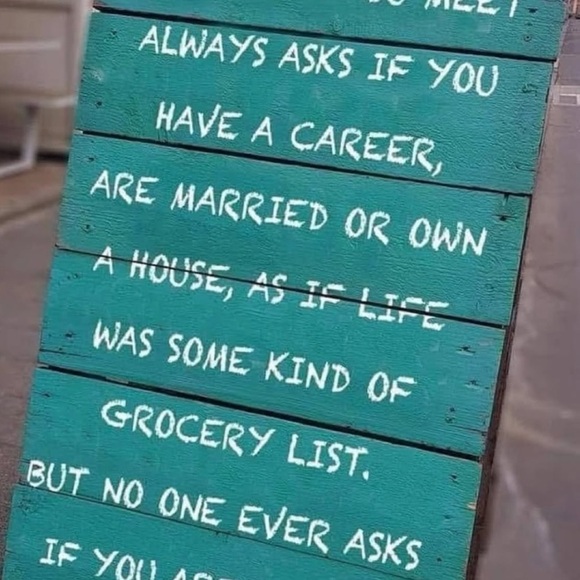 MEET
ALWAYS ASKS IF YOU
HAVE A CAREER,
ARE MARRIED OR OWN
A HOUSE, AS IF LIFE
WAS SOME KIND OF
GROCERY LIST.
BUT NO ONE EVER ASKS
IF YOU ARE